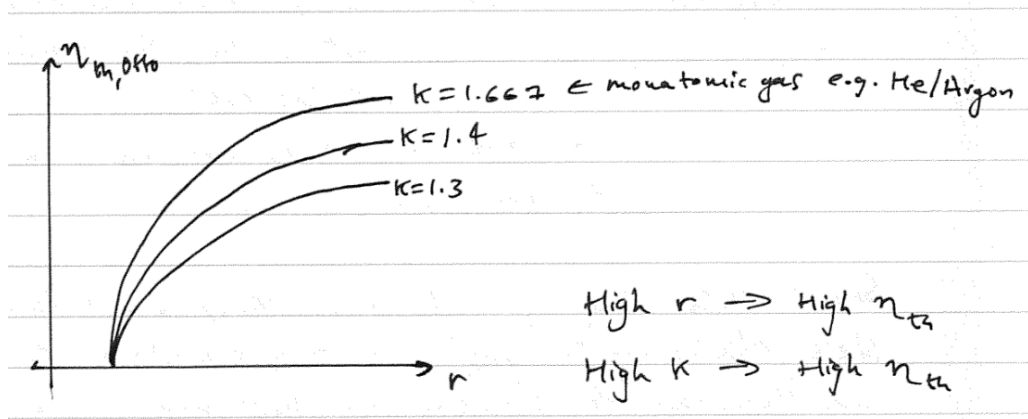 η th, Otto
K = 1.667 ← monatomic gas e.g. He/Argon
K = 1.4
K = 1.3
High r → High η th
r
High K → High η th